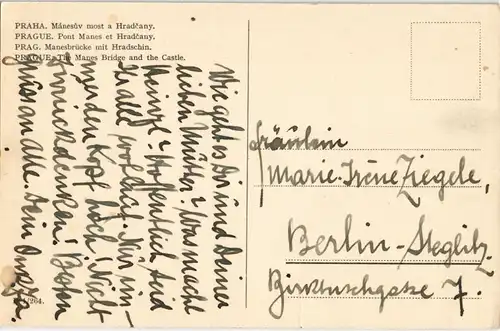 PRAHA. Mánesův most a Hradčany.
PRAGUE. Pont Manes et Hradčany.
PRAG. Manesbrücke mit Hradschin.
PRAGUE. The Manes Bridge and the Castle.
Wie geht es Dir und Deiner
lieben Mutter? Was macht
Heinzl? Hoffentlich seid
Ihr alle wohlauf. Nur im-
mer den Kopf hoch! Nicht
zurückdenken!
Gruss an Alle. Dein
/264.
Fräulein
Marie-Irene Ziegele,
Berlin-Steglitz.
7.